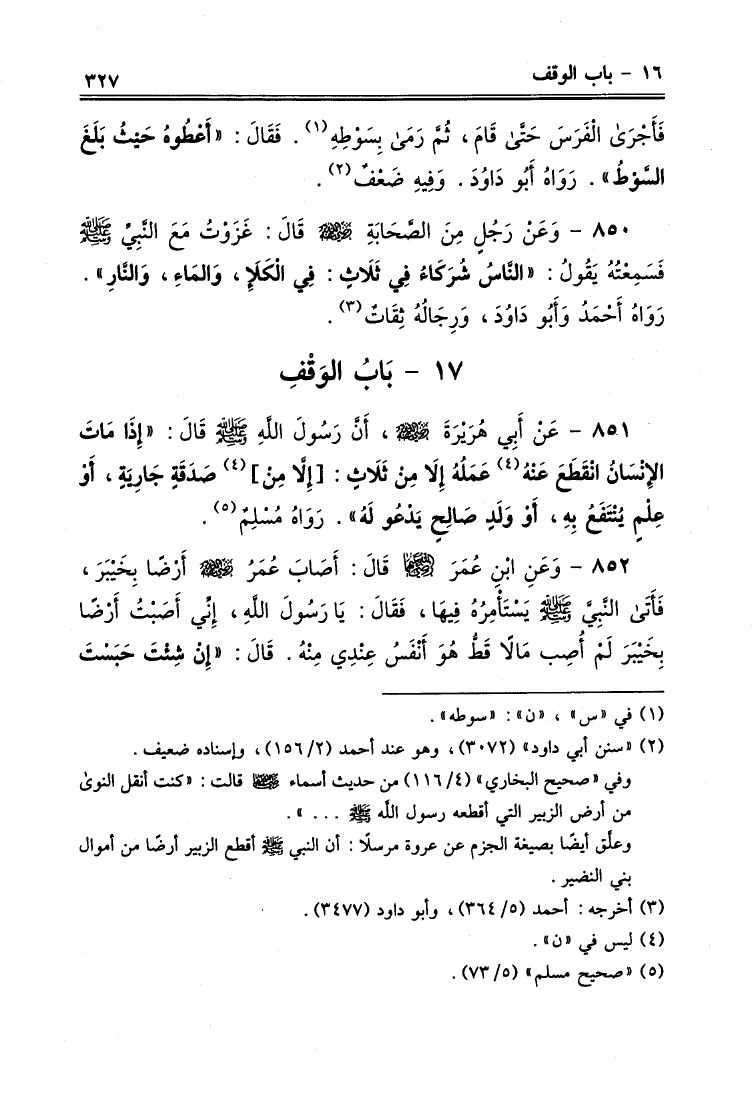 ١٦ - باب الوقف
٣٢٧
فَأَجْرَىٰ الْفَرَسَ حَتَّىٰ قَامَ، ثُمَّ رَمَىٰ بِسَوْطِهِ(١). فَقَالَ: «أَعْطُوهُ حَيْثُ بَلَغَ
السَّوْطُ». رَوَاهُ أَبُو دَاوُدَ. وَفِيهِ ضَعْفٌ(٢).
٨٥٠ - وَعَنْ رَجُلٍ مِنَ الصَّحَابَةِ رضي الله عنه قَالَ: غَزَوْتُ مَعَ النَّبِيِّ ﷺ
فَسَمِعْتُهُ يَقُولُ: «النَّاسُ شُرَكَاءُ فِي ثَلَاثٍ: فِي الْكَلَإِ، وَالمَاءِ، وَالنَّارِ».
رَوَاهُ أَحْمَدُ وَأَبُو دَاوُدَ، وَرِجَالُهُ ثِقَاتٌ(٣).
١٧ - بَابُ الوَقْفِ
٨٥١ - عَنْ أَبِي هُرَيْرَةَ رضي الله عنه، أَنَّ رَسُولَ اللَّهِ ﷺ قَالَ: «إِذَا مَاتَ
الإِنْسَانُ انْقَطَعَ عَنْهُ(٤) عَمَلُهُ إِلَّا مِنْ ثَلَاثٍ: [إِلَّا مِنْ](٤) صَدَقَةٍ جَارِيَةٍ، أَوْ
عِلْمٍ يُنْتَفَعُ بِهِ، أَوْ وَلَدٍ صَالِحٍ يَدْعُو لَهُ». رَوَاهُ مُسْلِمٌ(٥).
٨٥٢ - وَعَنِ ابْنِ عُمَرَ رضي الله عنهما قَالَ: أَصَابَ عُمَرُ رضي الله عنه أَرْضًا بِخَيْبَرَ،
فَأَتَىٰ النَّبِيَّ ﷺ يَسْتَأْمِرُهُ فِيهَا، فَقَالَ: يَا رَسُولَ اللَّهِ، إِنِّي أَصَبْتُ أَرْضًا
بِخَيْبَرَ لَمْ أُصِبْ مَالًا قَطُّ هُوَ أَنْفَسُ عِنْدِي مِنْهُ. قَالَ: «إِنْ شِئْتَ حَبَسْتَ
(١) في «س»، «ن»: «سوطه».
(٢) «سنن أبي داود» (٣٠٧٢)، وهو عند أحمد (٢/١٥٦)، وإسناده ضعيف.
وفي «صحيح البخاري» (٤/١١٦) من حديث أسماء رضي الله عنها قالت: «كنت أنقل النوىٰ
من أرض الزبير التي أقطعه رسول الله ﷺ ...».
وعلَّق أيضًا بصيغة الجزم عن عروة مرسلًا: أن النبي ﷺ أقطع الزبير أرضًا من أموال
بني النضير.
(٣) أخرجه: أحمد (٥/٣٦٤)، وأبو داود (٣٤٧٧).
(٤) ليس في «ن».
(٥) «صحيح مسلم» (٥/٧٣).